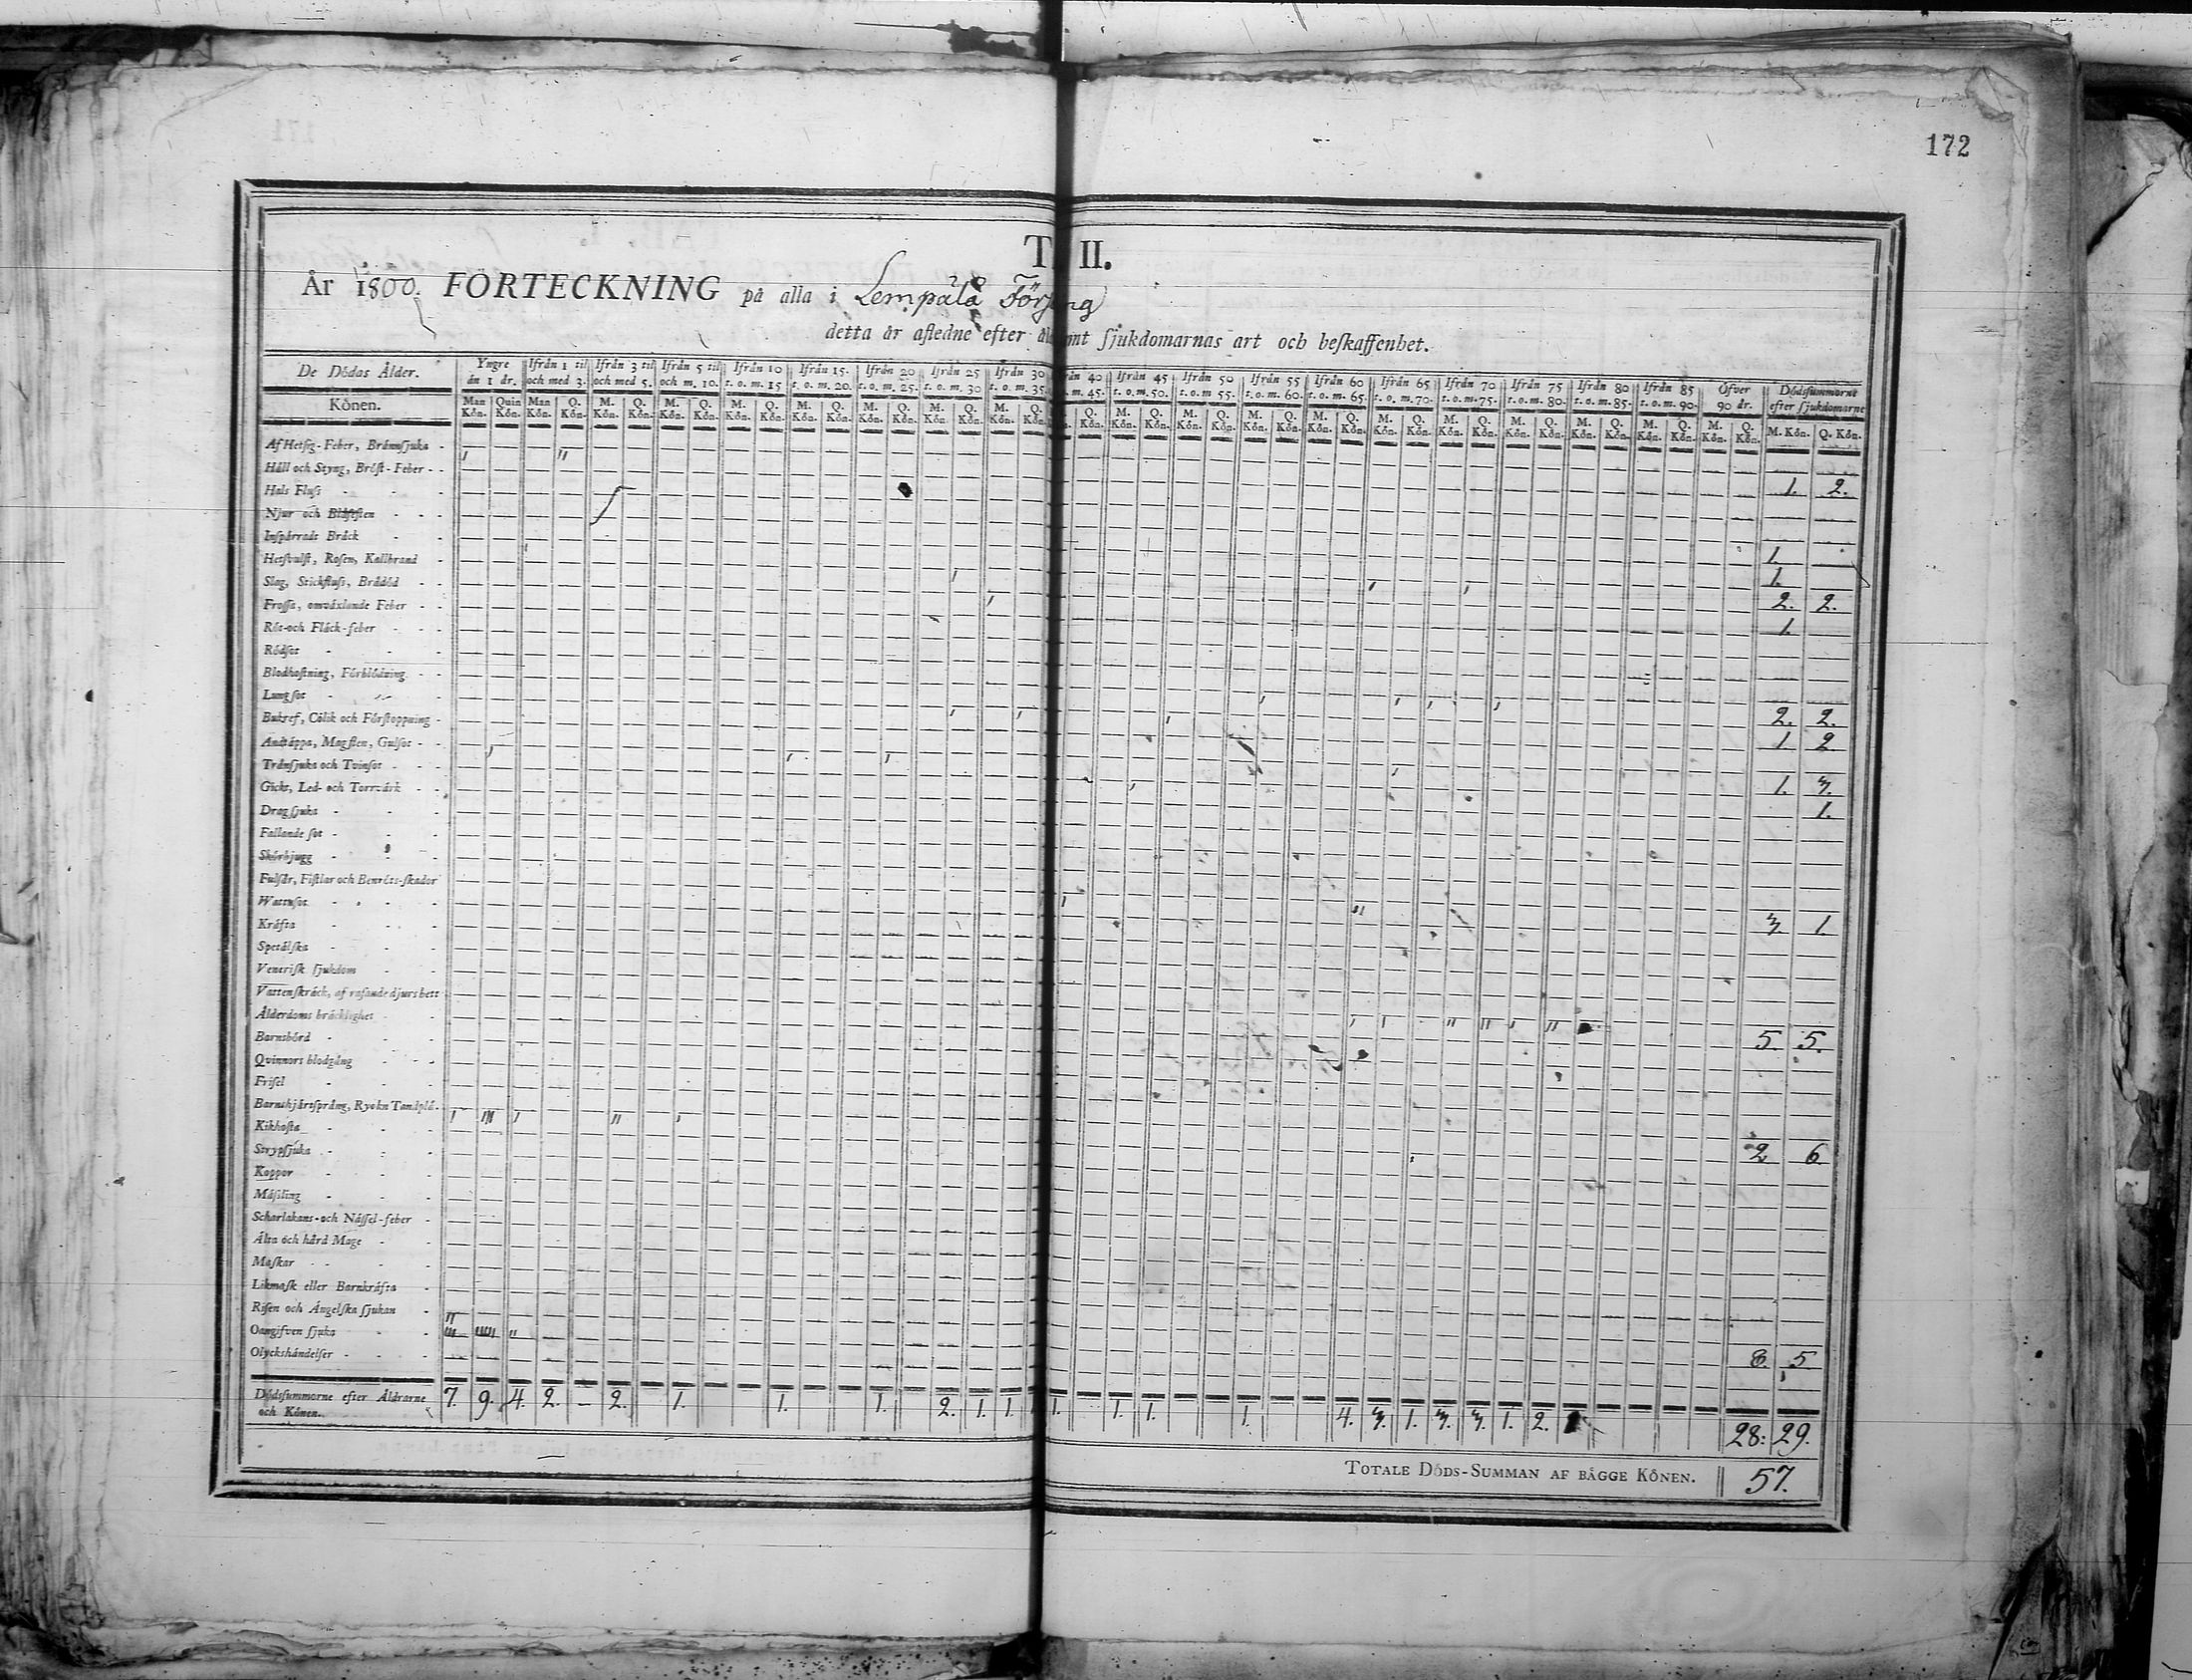 172
T. II.
År 1800. FÖRTECKNING på alla i Lempälä Församling
detta år afledne efter ålder samt sjukdomarnas art och beskaffenhet.
De Dödas Ålder. Yngre än 1 år. Ifrån 1 til och med 3. Ifrån 3 til och med 5. Ifrån 5 til och m. 10. Ifrån 10 t. o. m. 15 Ifrån 15. t. o. m. 20. Ifrån 20 t. o. m. 25. Ifrån 25 t. o. m. 30 Ifrån 30 t. o. m. 35. 40 m. 45. Ifrån 45 t. o. m. 50. Ifrån 50 t. o. m 55. Ifrån 55 t. o. m. 60. Ifrån 60 t. o. m. 65. Ifrån 65 t. o. m. 70. Ifrån 70 t. o. m. 75. Ifrån 75 t. o. m. 80. Ifrån 80 t. o. m. 85. Ifrån 85 t. o. m. 90. Öfver 90 år. Dödsummorne efter sjukdomarne
Könen. Man Kön. Quin Kön. Man Kön. Q. Kön. M. Kön. Q. Kön. M. Kön. Q. Kön. M. Kön. Q. Kön. M. Kön. Q. Kön. M. Kön. Q. Kön. M. Kön. Q. Kön. M. Kön. Q. Kön. Q. Kön. M. Kön. Q. Kön. M. Kön. Q. Kön. M. Kön. Q. Kön. M. Kön. Q. Kön. M. Kön. Q. Kön. M. Kön. Q. Kön. M. Kön. Q. Kön. M. Kön. Q. Kön. M. Kön. Q. Kön. M. Kön. Q. Kön. M. Kön. Q. Kön.
Af Hetsig-Feber, Brännsjuka
Håll och Styng, Bröst-Feber 1. 2.
Hals Fluss
Njur och Blåssten
Inspärrade Bråck 1.
Hetsvulst, Rosen, Kallbrand 1.
Slag, Stickfluss, Brådöd 2. 2.
Frossa, omväxlande Feber 1.
Röt-och Fläck-feber
Rödsot
Blodhostning, Förblödning
Lungsot 2. 2.
Bukref, Colik och Förstoppning 1 2
Andtäppa, Magsten, Gulsot
Trånsjuka och Tvinsot 1. 3.
Gickt, Led-och Torrvärk 1.
Dragsjuka
Fallande sot
Skörbjugg
Fulsår, Fistlar och Benröts-skador
Wattusot 3 1.
Kräfta
Spetälska
Venerisk sjukdom
Vattenskräck, af rasande djurs bett
Ålderdoms bräcklighet 5. 5.
Barnsbörd
Qvinnors blodgång
Frisel
Barnshjärtsprång, Ryck
Kikhosta 2 6.
Strypsjuka
Koppor
Mässling
Scharlakans-och Nässel-feber
Älta och hård Mage
Maskar
Likmask eller Barnkräfta
Risen och Ängelska sjukan
Oangifven sjuka 8. 5.
Olyckshändelser
Dödssummorne efter Åldrarne och Könen. 7. 9. 4. 2. – 2. 1. 1. 1. 2. 1. 1. 1. 1. 1. 1. 4. 3. 1. 3. 3. 1. 2. 28: 29.
TOTALE DÖDS-SUMMAN AF BÄGGE KÖNEN. 57.